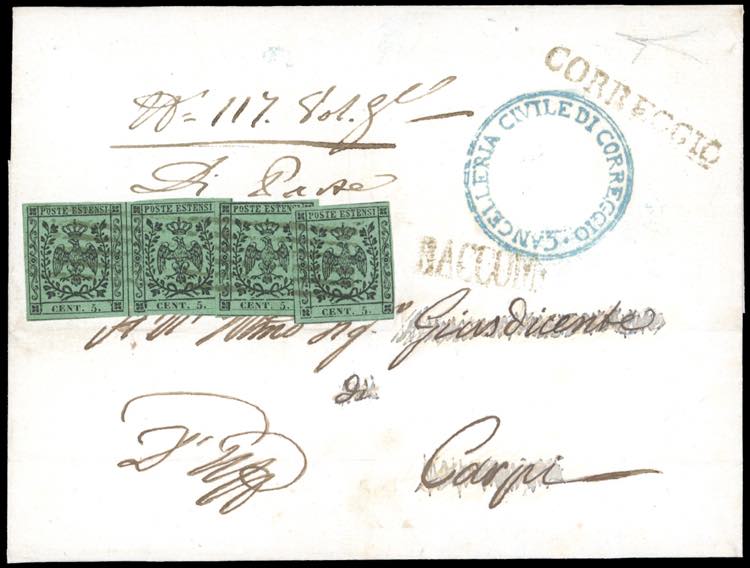 CORREGGIO
CANCELLERIA CIVILE DI CORREGGIO
Nº= 117. Vol. gle
Di Parte
POSTE ESTENSI POSTE ESTENSI POSTE ESTENSI POSTE ESTENSI
CENT. 5. CENT. 5. CENT. 5. CENT. 5.
RACCOM:
Giusdicente
di
D'Uff
Carpi